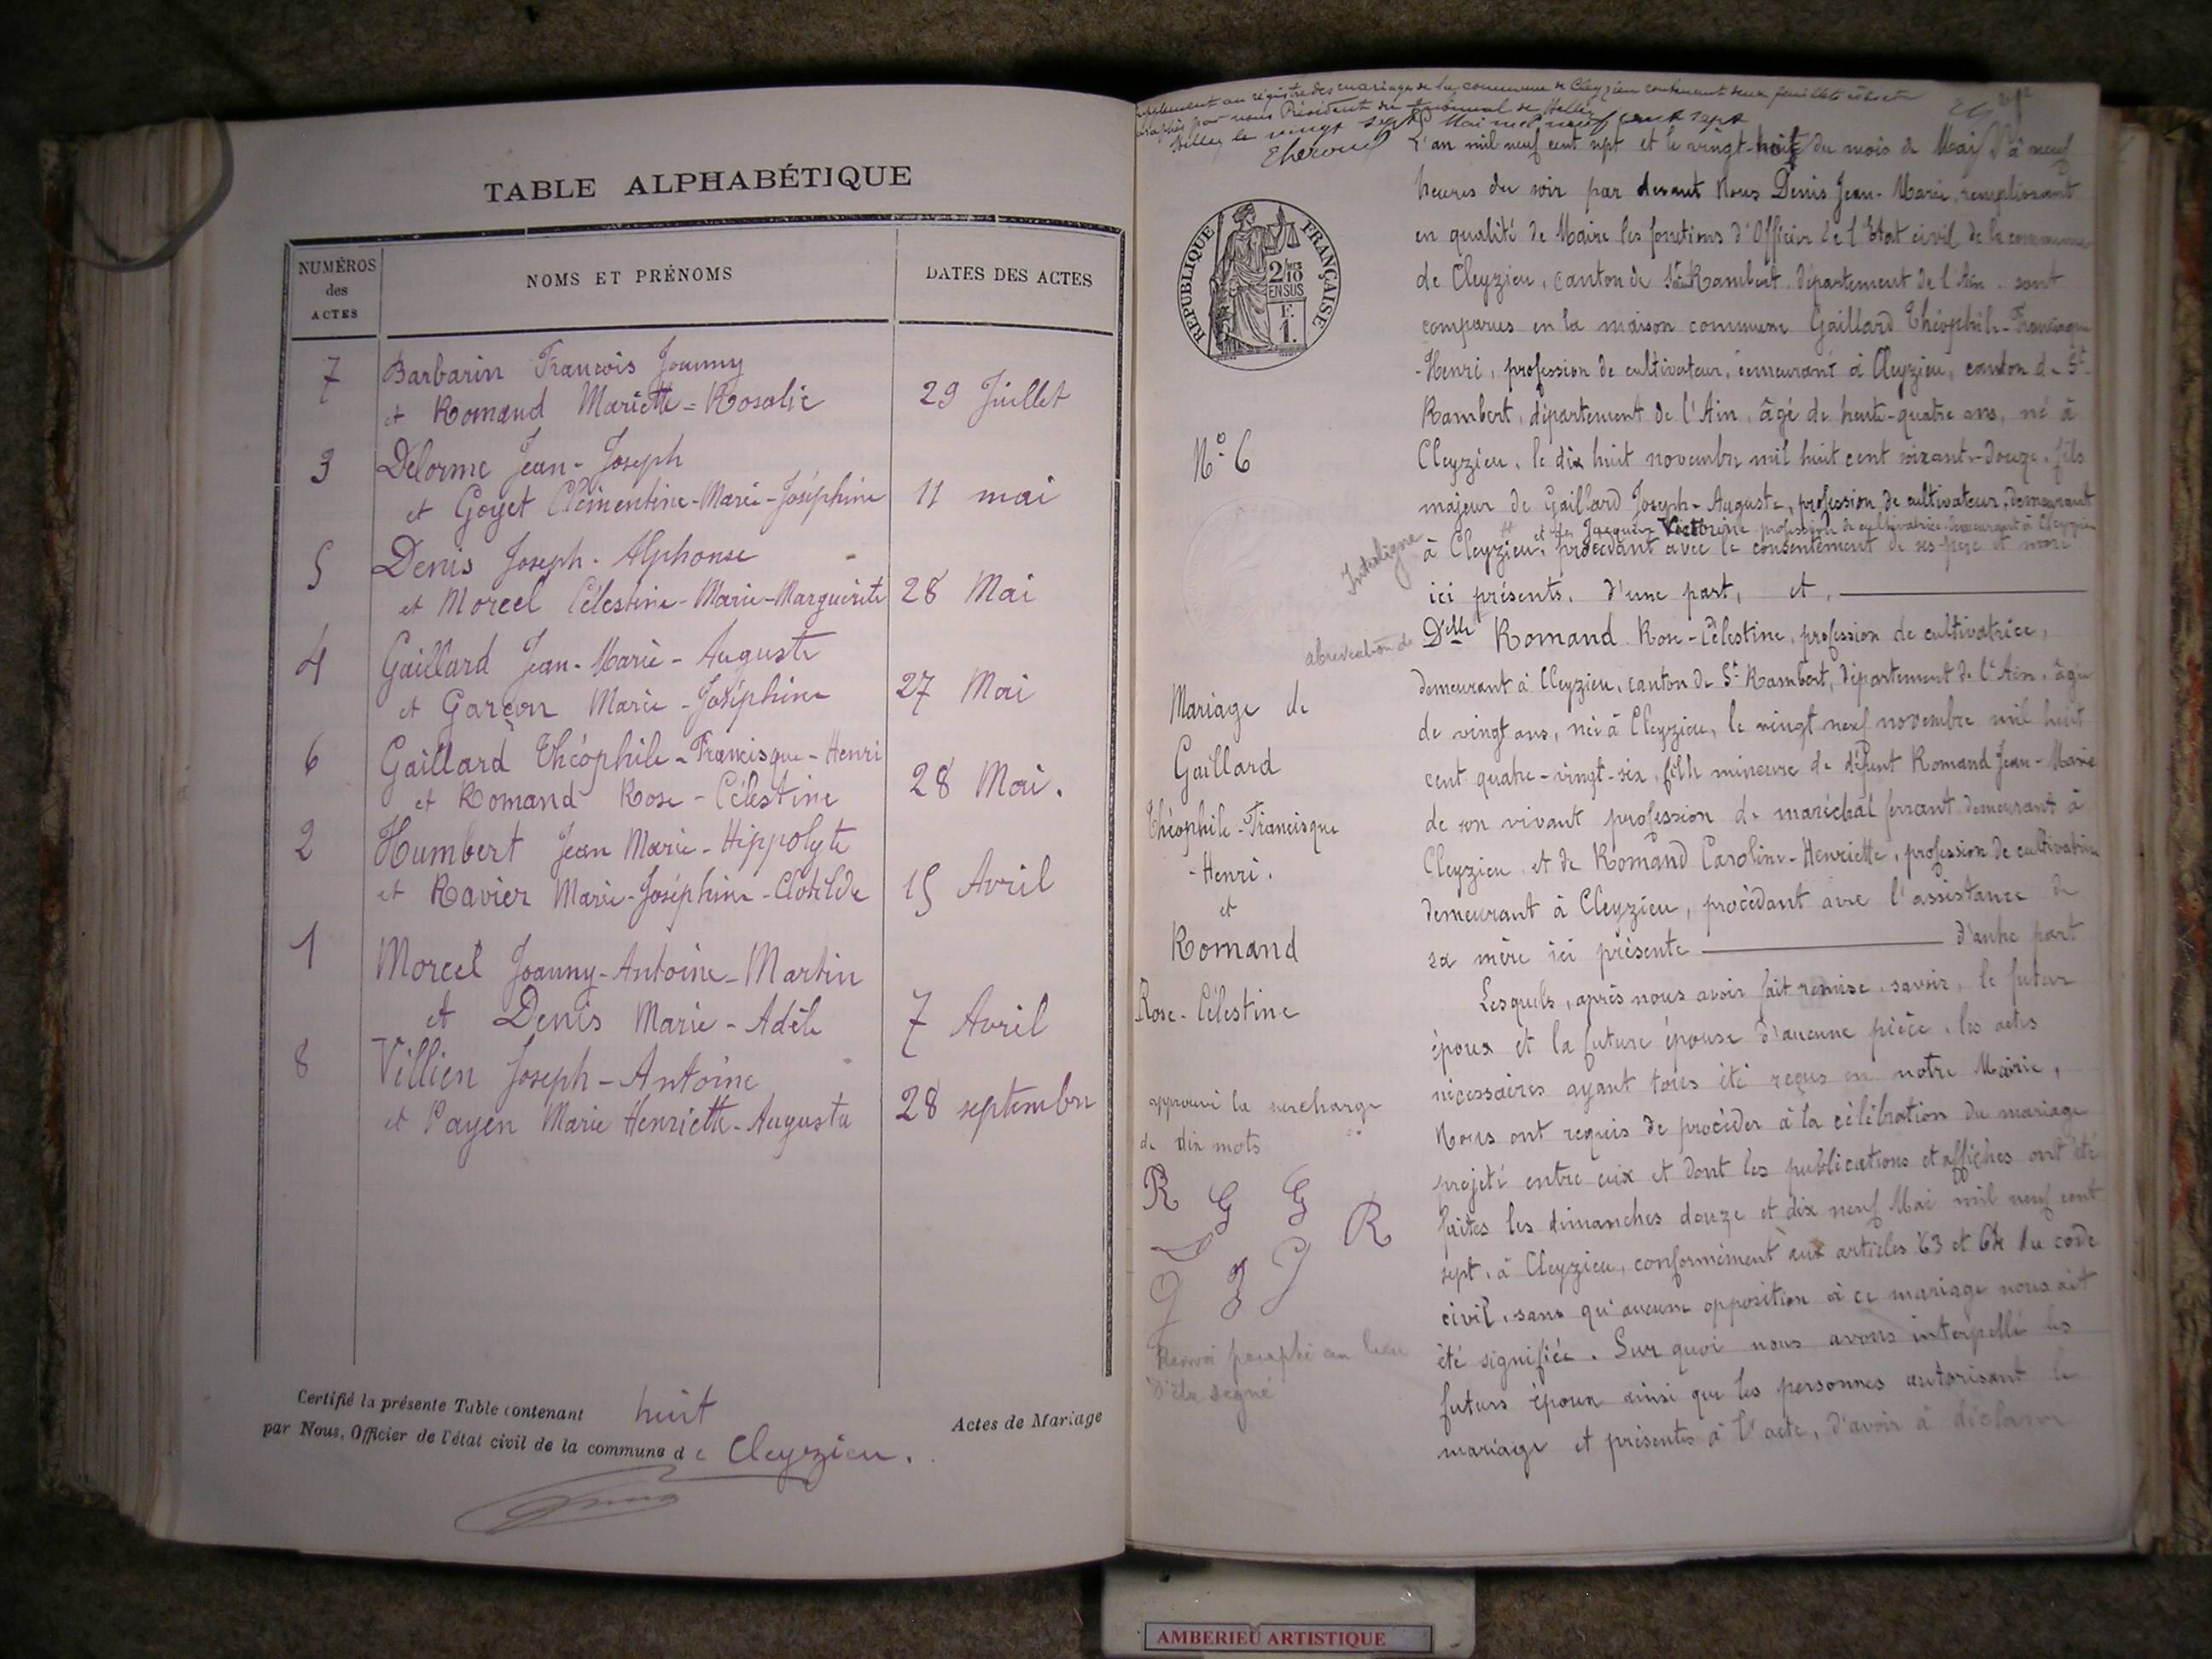 TABLE ALPHABÉTIQUE
NUMÉROS des ACTES
NOMS ET PRÉNOMS
DATES DES ACTES
7 Barbarin François Joanny
et Romand Mariette=Rosalie 29 Juillet
3 Delorme Jean-Joseph
et Goyet Clémentine-Marie-Joséphine 11 mai
5 Denis Joseph-Alphonse
et Morcel Célestine-Marie-Marguerite 28 Mai
4 Gaillard Jean-Marie-Auguste
et Garçon Marie-Joséphine 27 Mai
6 Gaillard Théophile-Francisque-Henri
et Romand Rose-Célestine 28 Mai.
2 Humbert Jean Marie-Hippolyte
et Ravier Marie-Joséphine-Clotilde 15 Avril
1 Morcel Joanny-Antoine-Martin
et Denis Marie-Adèle 7 Avril
8 Villien Joseph-Antoine
et Payen Marie Henriette-Augusta 28 septembre
Certifié la présente Table contenant huit Actes de Mariage
par Nous, Officier de l'état civil de la commune de Cleyzieu.
au registre des mariages de la commune de Cleyzieu contenant deux feuillets
par nous Président du tribunal de Belley
Belley le vingt sept Mai mil neuf cent sept
RÉPUBLIQUE FRANÇAISE
2/10 EN SUS
F. 1.
N° 6
Interligne
abreviation de
Mariage de
Gaillard
Théophile-Francisque
-Henri.
et
Romand
Rose-Célestine
approuvé la surcharge
de dix mots
R G G
R
Renvoi paraphé au lieu
d'être signé
L'an mil neuf cent sept et le vingt-huit du mois de Mai à neuf
heures du soir par devant Nous Denis Jean-Marie, remplissant
en qualité de Maire les fonctions d'Officier de l'Etat civil de la commune
de Cleyzieu, canton de St Rambert, département de l'Ain, sont
comparus en la maison commune Gaillard Théophile-Francisque
-Henri, profession de cultivateur, demeurant à Cleyzieu, canton de St-
Rambert, département de l'Ain, âgé de trente-quatre ans, né à
Cleyzieu, le dix huit novembre mil huit cent soixante-douze, fils
majeur de Gaillard Joseph-Auguste, profession de cultivateur, demeurant
et de Jacquier Victorine profession de cultivatrice demeurant à Cleyzieu
à Cleyzieu, procédant avec le consentement de ses père et mère
ici présents. d'une part, et,
Delle Romand Rose-Célestine, profession de cultivatrice,
demeurant à Cleyzieu, canton de St-Rambert, département de l'Ain, âgée
de vingt ans, née à Cleyzieu, le vingt neuf novembre mil huit
cent quatre-vingt-six, fille mineure de défunt Romand Jean-Marie
de son vivant profession de maréchal ferrant demeurant à
Cleyzieu et de Romand Caroline-Henriette, profession de cultivatrice
demeurant à Cleyzieu, procédant avec l'assistance de
sa mère ici présente d'autre part
Lesquels, après nous avoir fait remise, savoir, le futur
époux et la future épouse d'aucune pièce, les actes
nécessaires ayant tous été reçus en notre Mairie,
Nous ont requis de procéder à la célébration du mariage
projeté entre eux et dont les publications et affiches ont été
faites les dimanches douze et dix neuf Mai mil neuf cent
sept, à Cleyzieu, conformément aux articles 63 et 64 du code
civil, sans qu'aucune opposition à ce mariage nous ait
été signifiée. Sur quoi nous avons interpellé les
futurs époux ainsi que les personnes autorisant le
mariage et présentes à l'acte, d'avoir à déclarer
AMBERIEU ARTISTIQUE